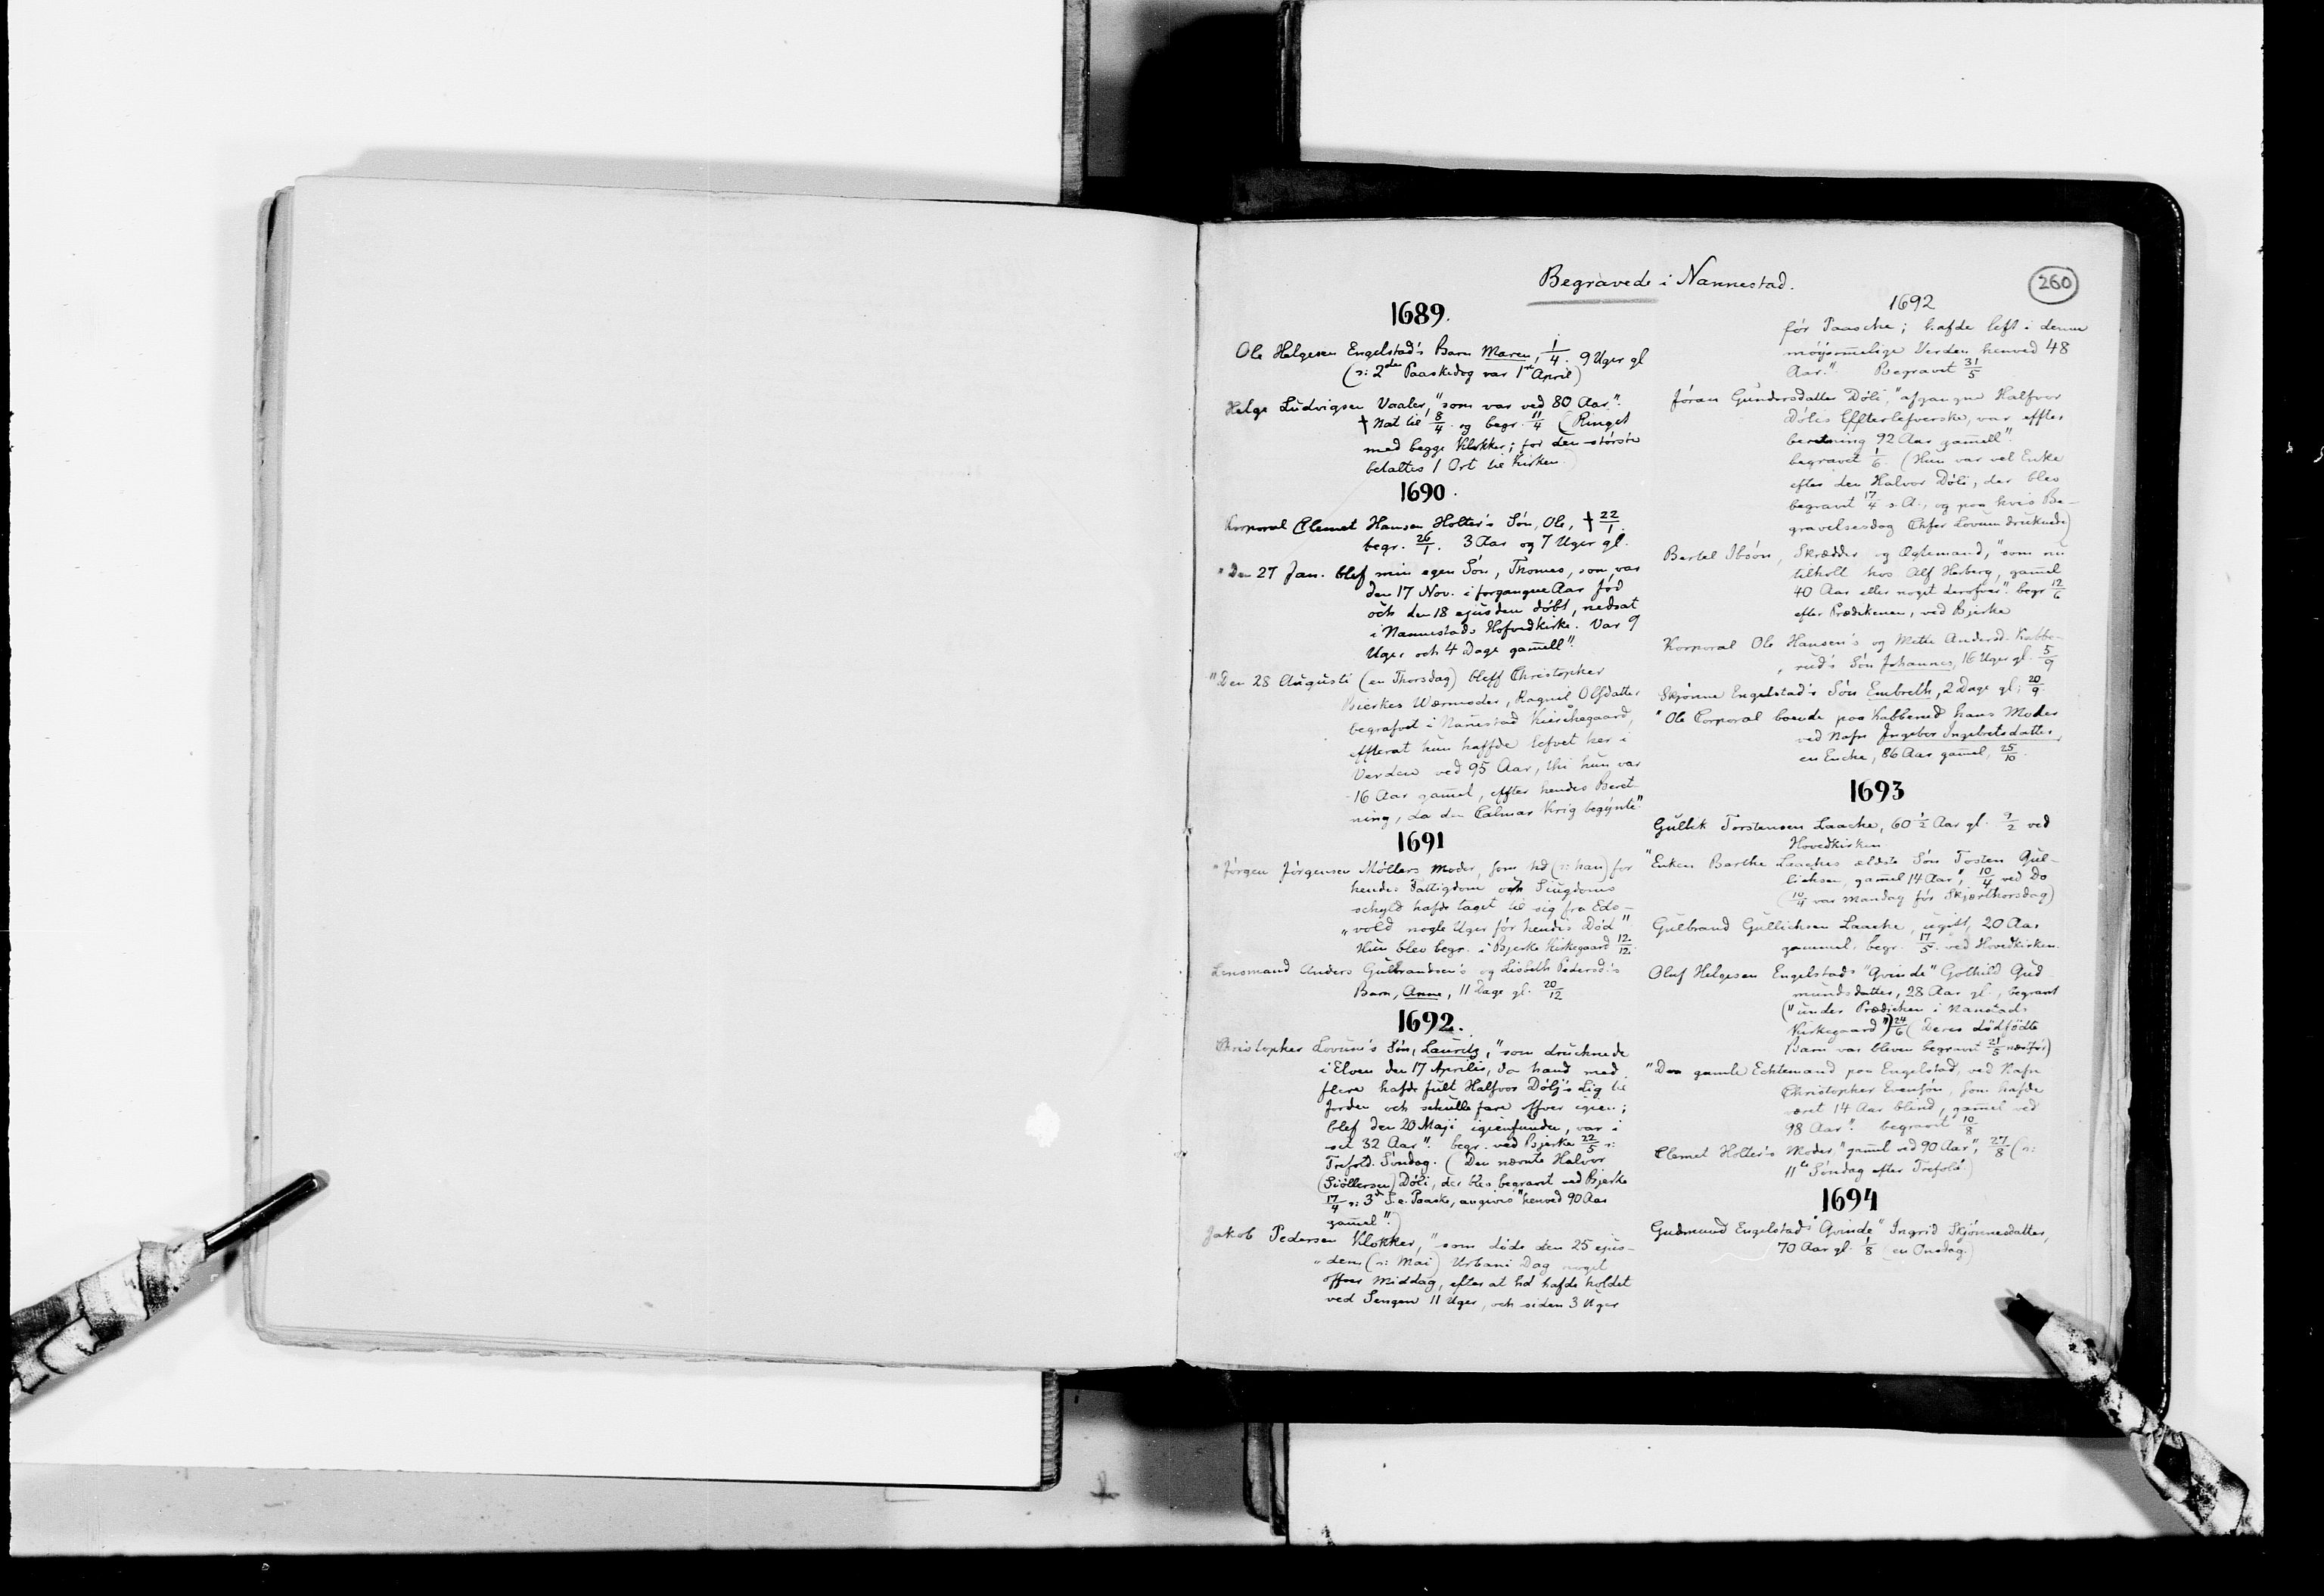 Begravede i Nannestad.
260
1689.
Ole Helgesen Engelstad's Barn Maren, 1/4. 9 Uger gl
(ɔ: 2den Paaskedag var 1ste April)
Helge Ludvigsen Vaaler, "som var ved 80 Aar".
† Nat til 8/4. og begr. 11/4 (Ringet
med begge Klokker; for den största
betaltes 1 Ort til Kirken.)
1690.
Korporal Clemet Hansen Holter's Sön, Ole, † 22/1.
begr. 26/1. 3 Aar og 7 Uger gl.
"Den 27 Jan. blef min egen Sön, Thomes, som var
den 17 Nov. i forgangne Aar föd
och den 18 ejusdem döbt, nedsat
i Nannestads Hofvedkirke. Var 9
Uger och 4 Dage gam̅ell".
"Den 28 Augusti (en Thorsdag) bleff Christopher
Bierkes Wærmoder, Ragnil Olfsdatter
begrafvet i Nan̅estad Kierchegaard,
effterat hun haffde lefvet her i
Verden ved 95 Aar, thi hun var
16 Aar gam̅el, effter hendes Beret-
ning, da den Calmar Krig begynte".
1691
"Jörgen Jörgensen Möllers Moder, som hd (ɔ: han) for
hendes Fattigdom och Siugdoms
schyld hafde taget til sig fra Eds-
"vold nogle Uger för hendes Död"
Hun blev begr. i Bjerke Kirkegaard 12/12.
Lensmand Anders Gulbrandsen's og Lisbeth Pedersd's
Barn, Anne, 11 Dage gl. 20/12
1692.
Christopher Lovum's Sön, Lauritz, "som druchnede
i Elven den 17 Aprilis, da hand med
flere hafde fult Halfvor Dölj's Lig til
Jorden och schulle fare offver igien;
blef den 20 Maji igienfunden, var i
sit 32 Aar". begr. ved Bjerke 22/5 ɔ:
Trefold. Söndag. (Den nævnte Halvor
(Siöllersen) Döli, der blev begravet ved Bjerke
17/4 ɔ: 3d S. e. Paaske, angives "henved 90 Aar
gam̅el".)
Jakob Pedersen Klokker, "som döde den 25 ejus-
"dem (ɔ: Mai) Urbani Dag noget
offver Middag, efter at hd hafde holdet
ved Sengen 11 Uger, och siden 3 Uger
1692
för Paasche; hafde left i denne
möjsom̅elige Verden henved 48
Aar." Begravet 31/5
Jöran Gundersdatter Döli, "afgangne Halfvor
Dölis Effterlefverske, var effter
beretning 92 Aar gam̅ell".
begravet 1/6. (Hun var vel Enke
efter den Halvor Döli, der blev
begravet 17/4 s. A., og paa hvis Be-
gravelsesdag Chfer Lovum druknede)
Bertel Ibsön, Skrædder og Ægtemand, "som nu
tilholt hos Alf Herberg, gam̅el
40 Aar eller noget derofver". begr 12/6
efter Prædikenen, ved Bjerke
Korporal Ole Hansen's og Mette Andersd. Kabbe-
rud's Sön Johannes, 16 Uger gl. 5/9
Skjönne Engelstad's Sön Embreth, 2 Dage gl; 20/9.
"Ole Corporal boende paa Kabberud hans Moder
ved Nafn Ingebor Ingebretsdatter,
en Enche, 86 Aar gam̅el, 25/10.
1693
Gullik Torstensen Laache, 60 1/2 Aar gl. 9/2 ved
Hovedkirken
"Enken Barthe Laaches ældste Sön Tosten Gul-
lichsen, gam̅el 14 Aar", 10/4 ved Do
(10/4 var Mandag för Skjærthorsdag)
Gulbrand Gullichsen Laache, ugift, 20 Aar
gammel. begr. 17/5. ved Hovedkirken.
Oluf Helgesen Engelstads "Qvinde" Gothild Gud
mundsdatter, 28 Aar gl., begravet
("under Prædichen i Nanstads
Kirkegaard") 24/6 (Deres dödfödte
Barn var bleven begravet 21/5 næstför)
"Den gamle Echtemand paa Engelstad, ved Nafn
Christopher Evensön, som hafde
været 14 Aar blind, gam̅el ved
98 Aar". begravet 10/8
Clemet Holter's Moder, "gam̅el ved 90 Aar", 27/8 (ɔ:
11te Söndag efter Trefold.)
1694
Gudmund Engelstads "Qvinde" Ingrid Skjönnesdatter,
70 Aar gl. 1/8 (en Onsdag.)